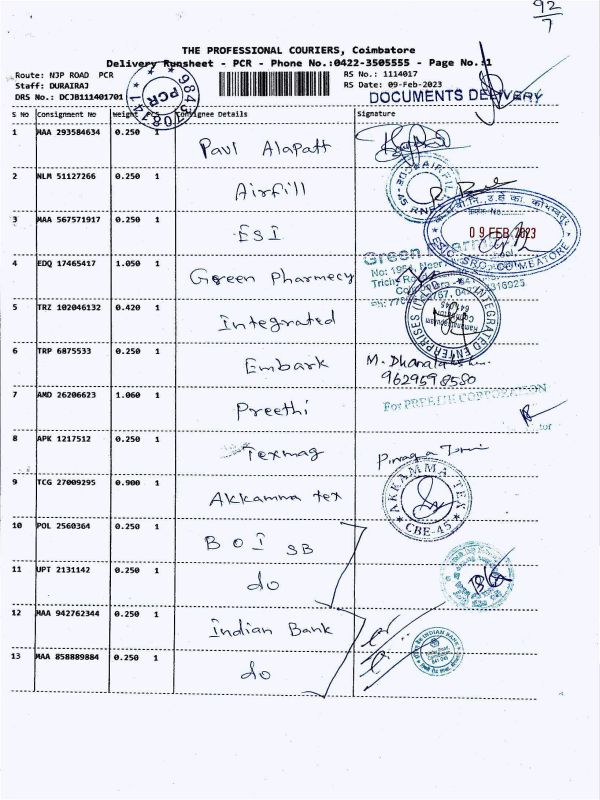 92
7
THE PROFESSIONAL COURIERS, Coimbatore
Delivery Runsheet - PCR - Phone No.:0422-3505555 - Page No.:1
Route: NJP ROAD PCR
RS No.: 1114017
Staff: DURAIRAJ
RS Date: 09-Feb-2023
DRS No.: DCJB111401701
DOCUMENTS DELIVERY
PCR
S No Consignment No Weight PCS Consignee Details Signature
1 MAA 293584634 0.250 1 Paul Alapatt
2 NLM 51127266 0.250 1 Airfill
3 MAA 567571917 0.250 1 ESI
09 FEB 2023
4 EDQ 17465417 1.050 1 Green Pharmecy
Green
5 TRZ 102046132 0.420 1 Integrated
INTEGRATED ENTERPRISES
641 045
6 TRP 6875533 0.250 1 Embark
9629598580
7 AMD 26206623 1.060 1 Preethi
For PREETHI CORPORATION
8 APK 1217512 0.250 1 Texmag
9 TCG 27009295 0.900 1 Akkamma tex
AKKAMMA TEX
CBE-45
10 POL 2560364 0.250 1 BOI SB
11 UPT 2131142 0.250 1 do
12 MAA 942762344 0.250 1 Indian Bank
INDIAN BANK
13 MAA 858889884 0.250 1 do